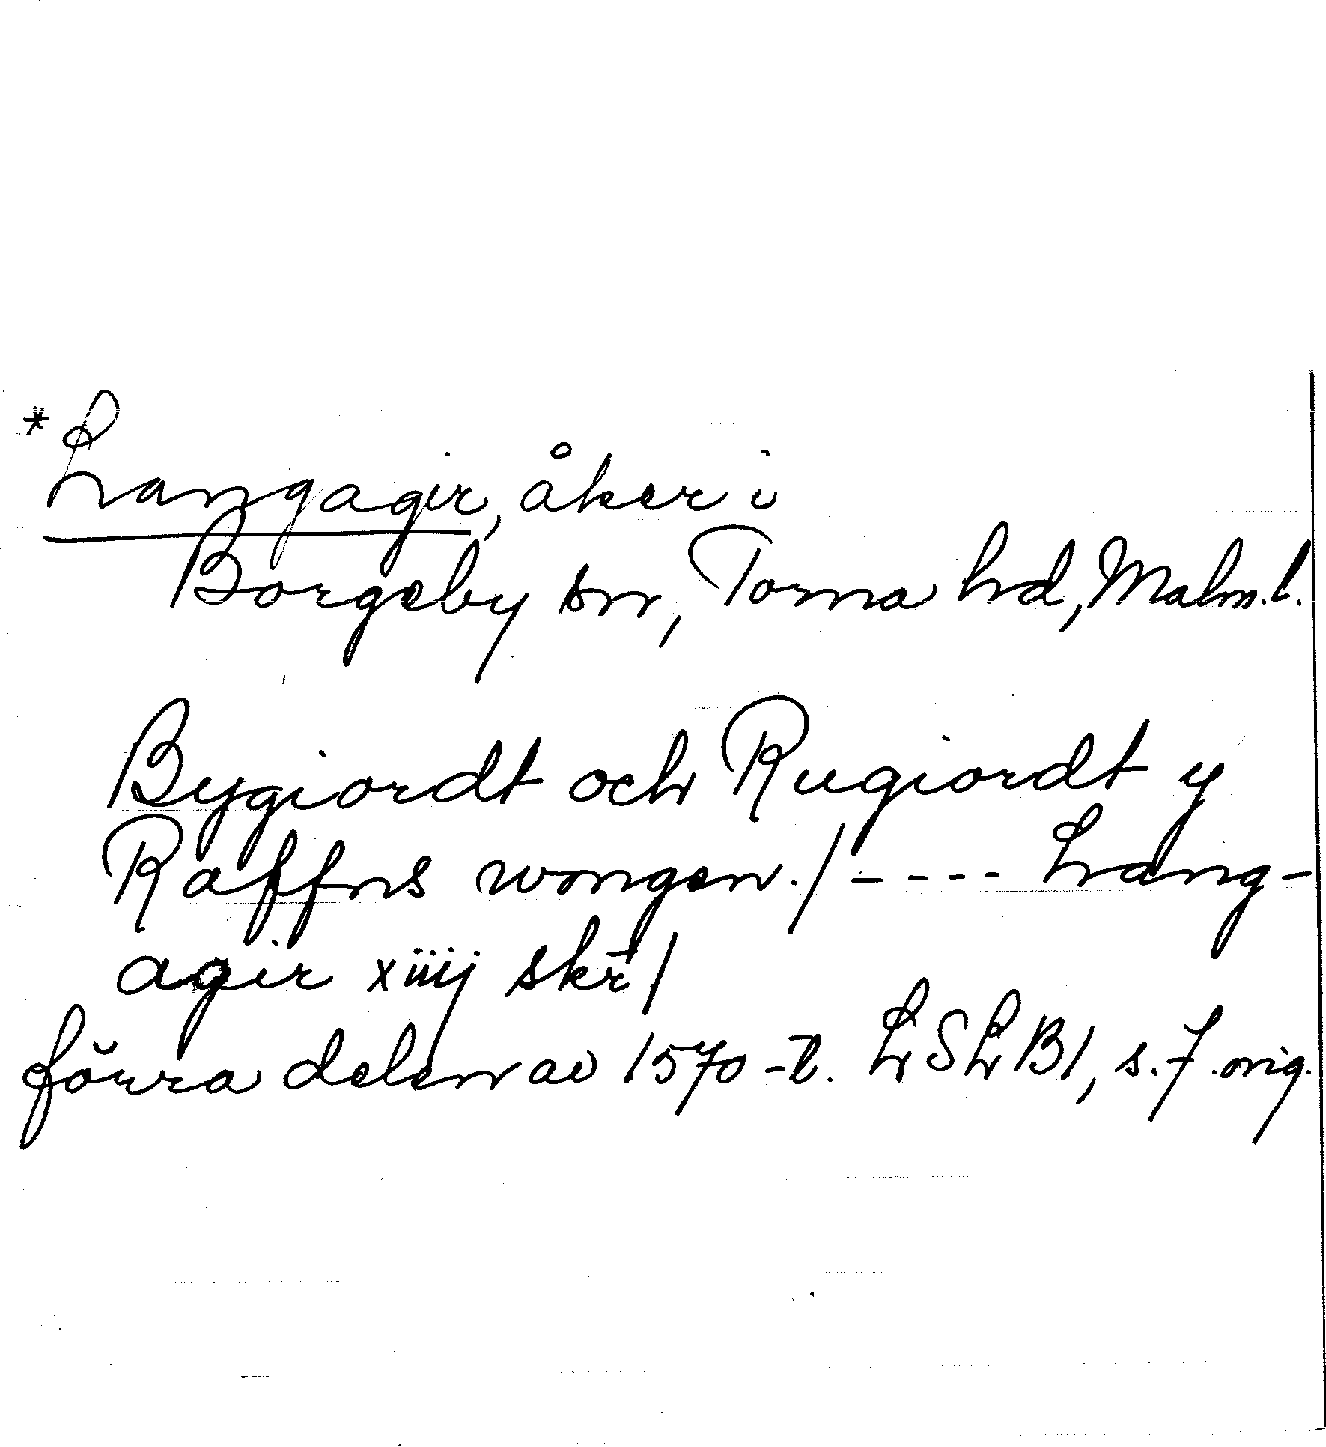 *Langagir, åker i
Borgeby sn, Torna hd, Malm. l.
Bygiordt och Rugiordt y
Raffns wongen./---- Lang-
agir xiiij skr̄/
förra delen av 1570-t. LSLB1, s. 7. orig.